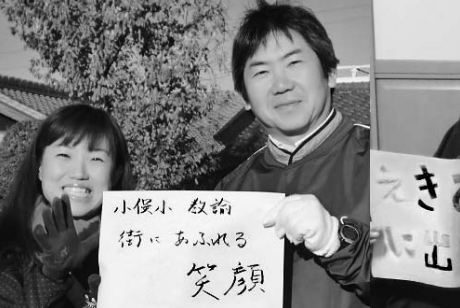 小俣小 教諭
街に あふれる
笑顔
えき
山